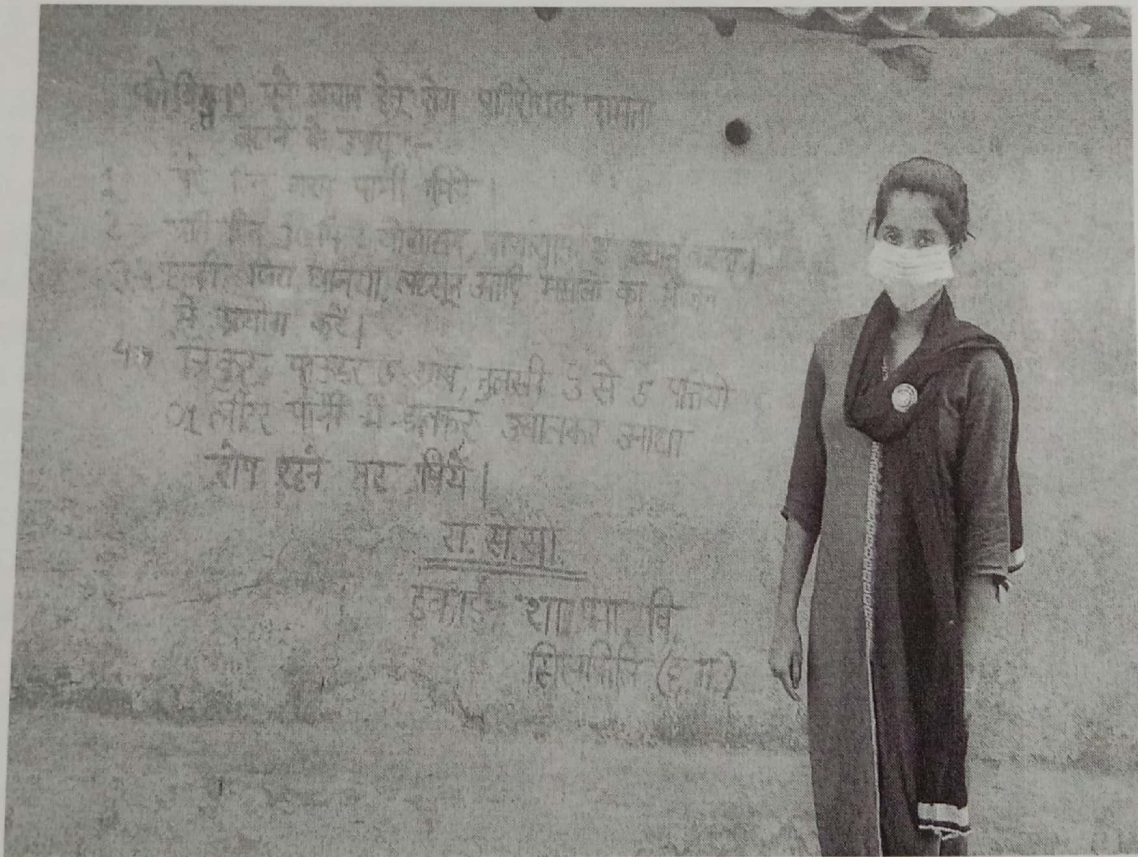 कोविड 19 से बचाव हेतु रोग प्रतिरोधक क्षमता
बढ़ाने के उपाय :-
1 पूरे दिन गरम पानी पिये।
2- प्रति दिन 30 मि. योगासन, प्राणायाम व ध्यान करें।
3- हल्दी, जिरा, धनिया, लहसून आदि मसालो का भोजन
में प्रयोग करें।
4- त्रिकुट पाउडर 5 ग्राम, तुलसी 3 से 5 पत्तियाँ
01 लीटर पानी में डालकर उबालकर आधा
शेष रहने पर पिये।
रा.से.यो.
इकाई शा. मा. वि.
(छ.ग.)